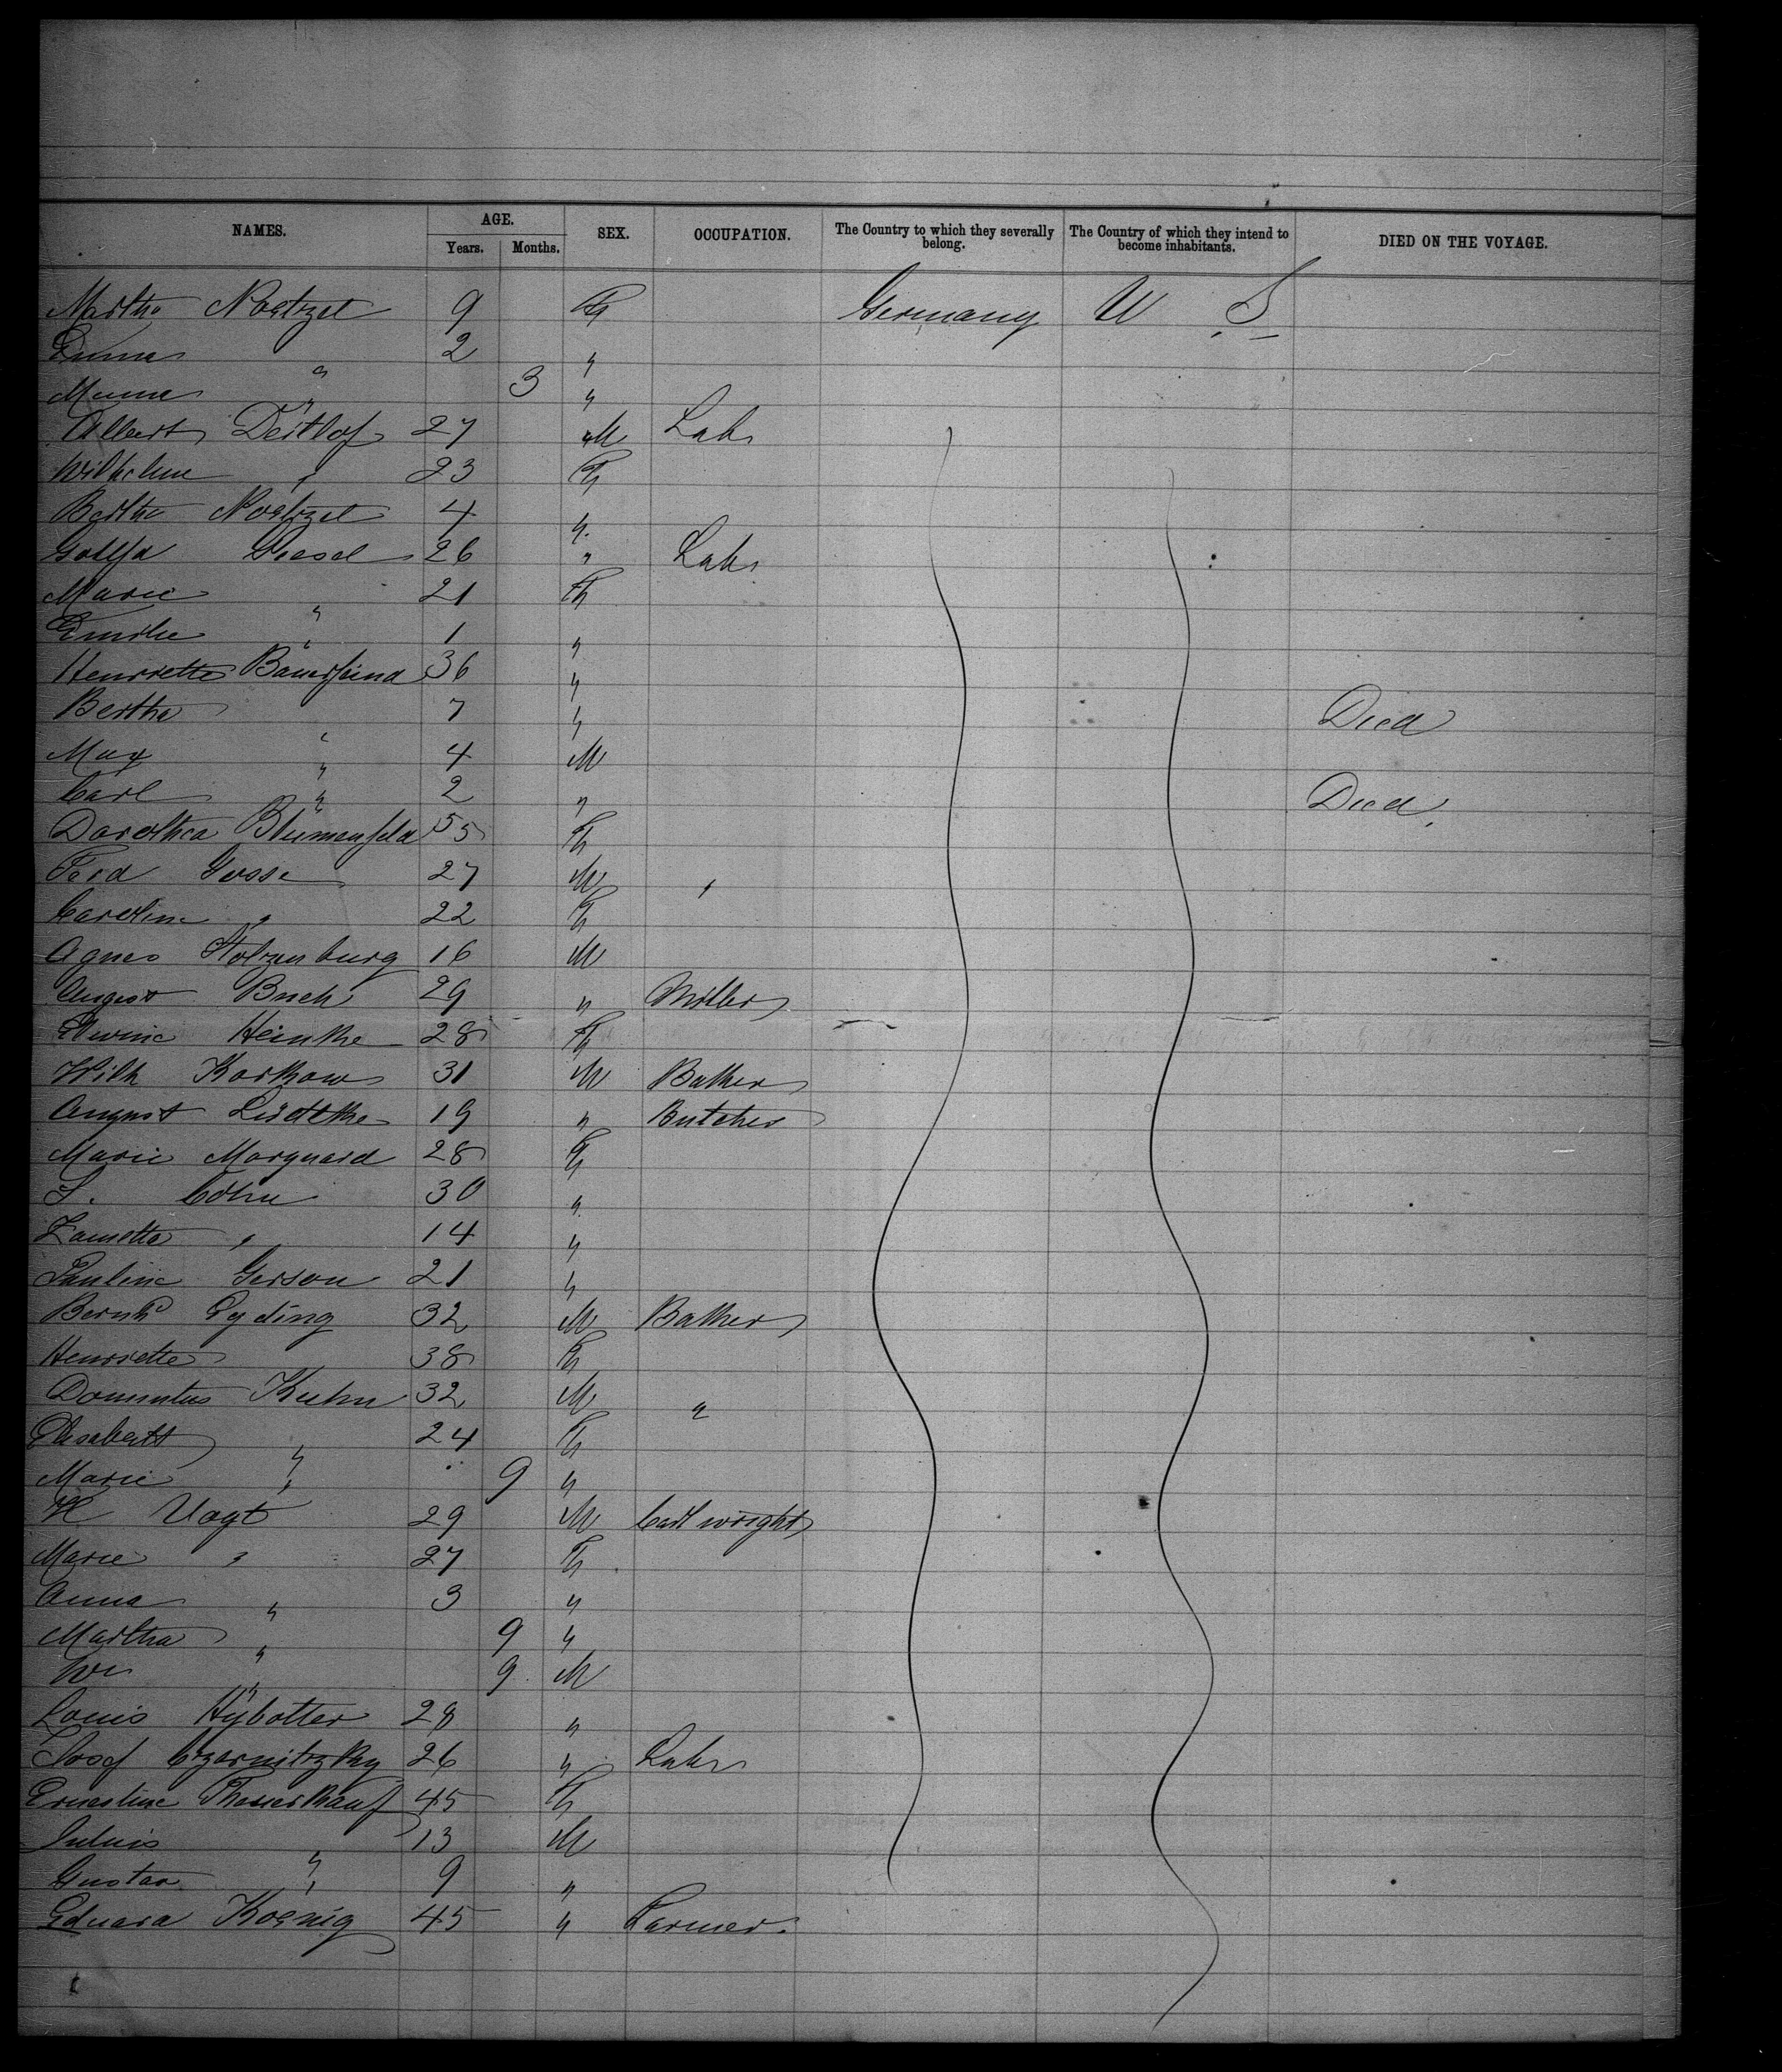 NAMES. AGE. SEX. OCCUPATION. The Country to which they severally belong. The Country of which they intend to become inhabitants. DIED ON THE VOYAGE.
Years. Months.
Martha Noetzel 9 F Germany U S
Emma " 2 "
" 3 "
Albert Detlof 27 M Lab
Wilhelm " 23 F
Bertha Noetzel 4 "
26 " Lab
Marie " 21 F
Emilie " 1 "
Henriette 36 "
Bertha " 7 " Died
Max " 4 M
Carl " 2 " Died.
Dorothea Blumenfeld 55 F
Ferd Gosse 27 M "
Caroline " 22 F
Agnes Stolzenburg 16 M
August Buch 29 " Miller
Heinke 28 F
Wilh Korkow 31 M Baker
August Lüdtke 19 " Butcher
Marie Marquard 28 F
S. Cohn 30 "
" 14 "
Pauline Gerson 21 "
Bernhd 32 M Baker
Henriette 38 F
Kuhn 32 M "
Elisabeth " 24 F
Marie " 9 "
H Vogt 29 M Cartwright
Marie " 27 F
Anna " 3 "
Martha " 9 "
Wm " 9 M
Louis Hybotter 28 "
Josef Czarnitzky 26 " Lab
Ernestine 45 F
Julius " 13 M
Gustav " 9 "
Eduard Koenig 45 " Farmer.